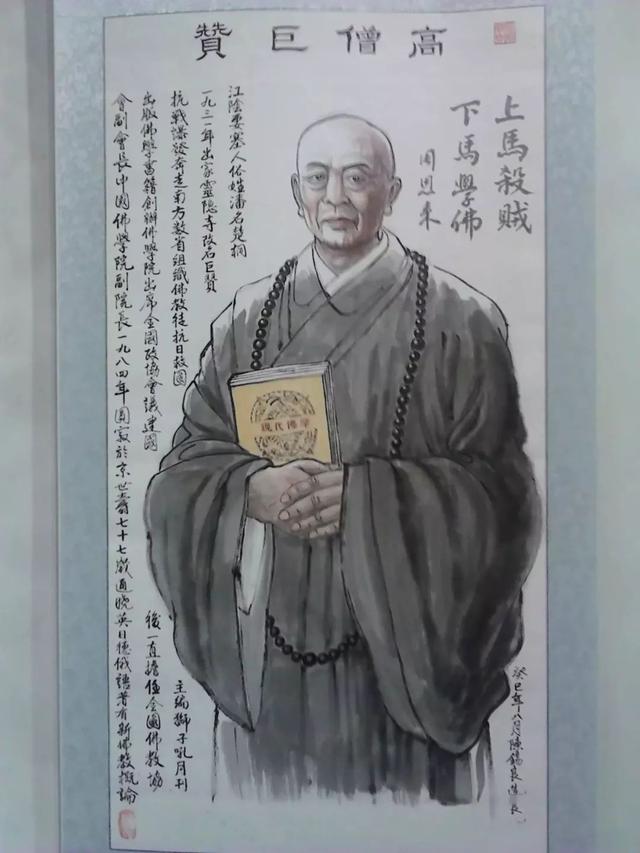 高僧巨贊
上馬殺賊
下馬學佛
周恩來
江陰要塞人俗姓潘名楚桐
一九三一年出家靈隱寺改名巨贊
抗戰爆發奔走南方數省組織佛教徒抗日救國
主編獅子吼月刊
出版佛學書籍創辦佛學院出席全國政協會議建國
後一直擔任全國佛教協
會副會長中國佛學院副院長一九八四年圓寂於京世壽七十七歲通曉英日德俄語著有新佛教概論
現代佛學
癸巳年八月陳錫良造